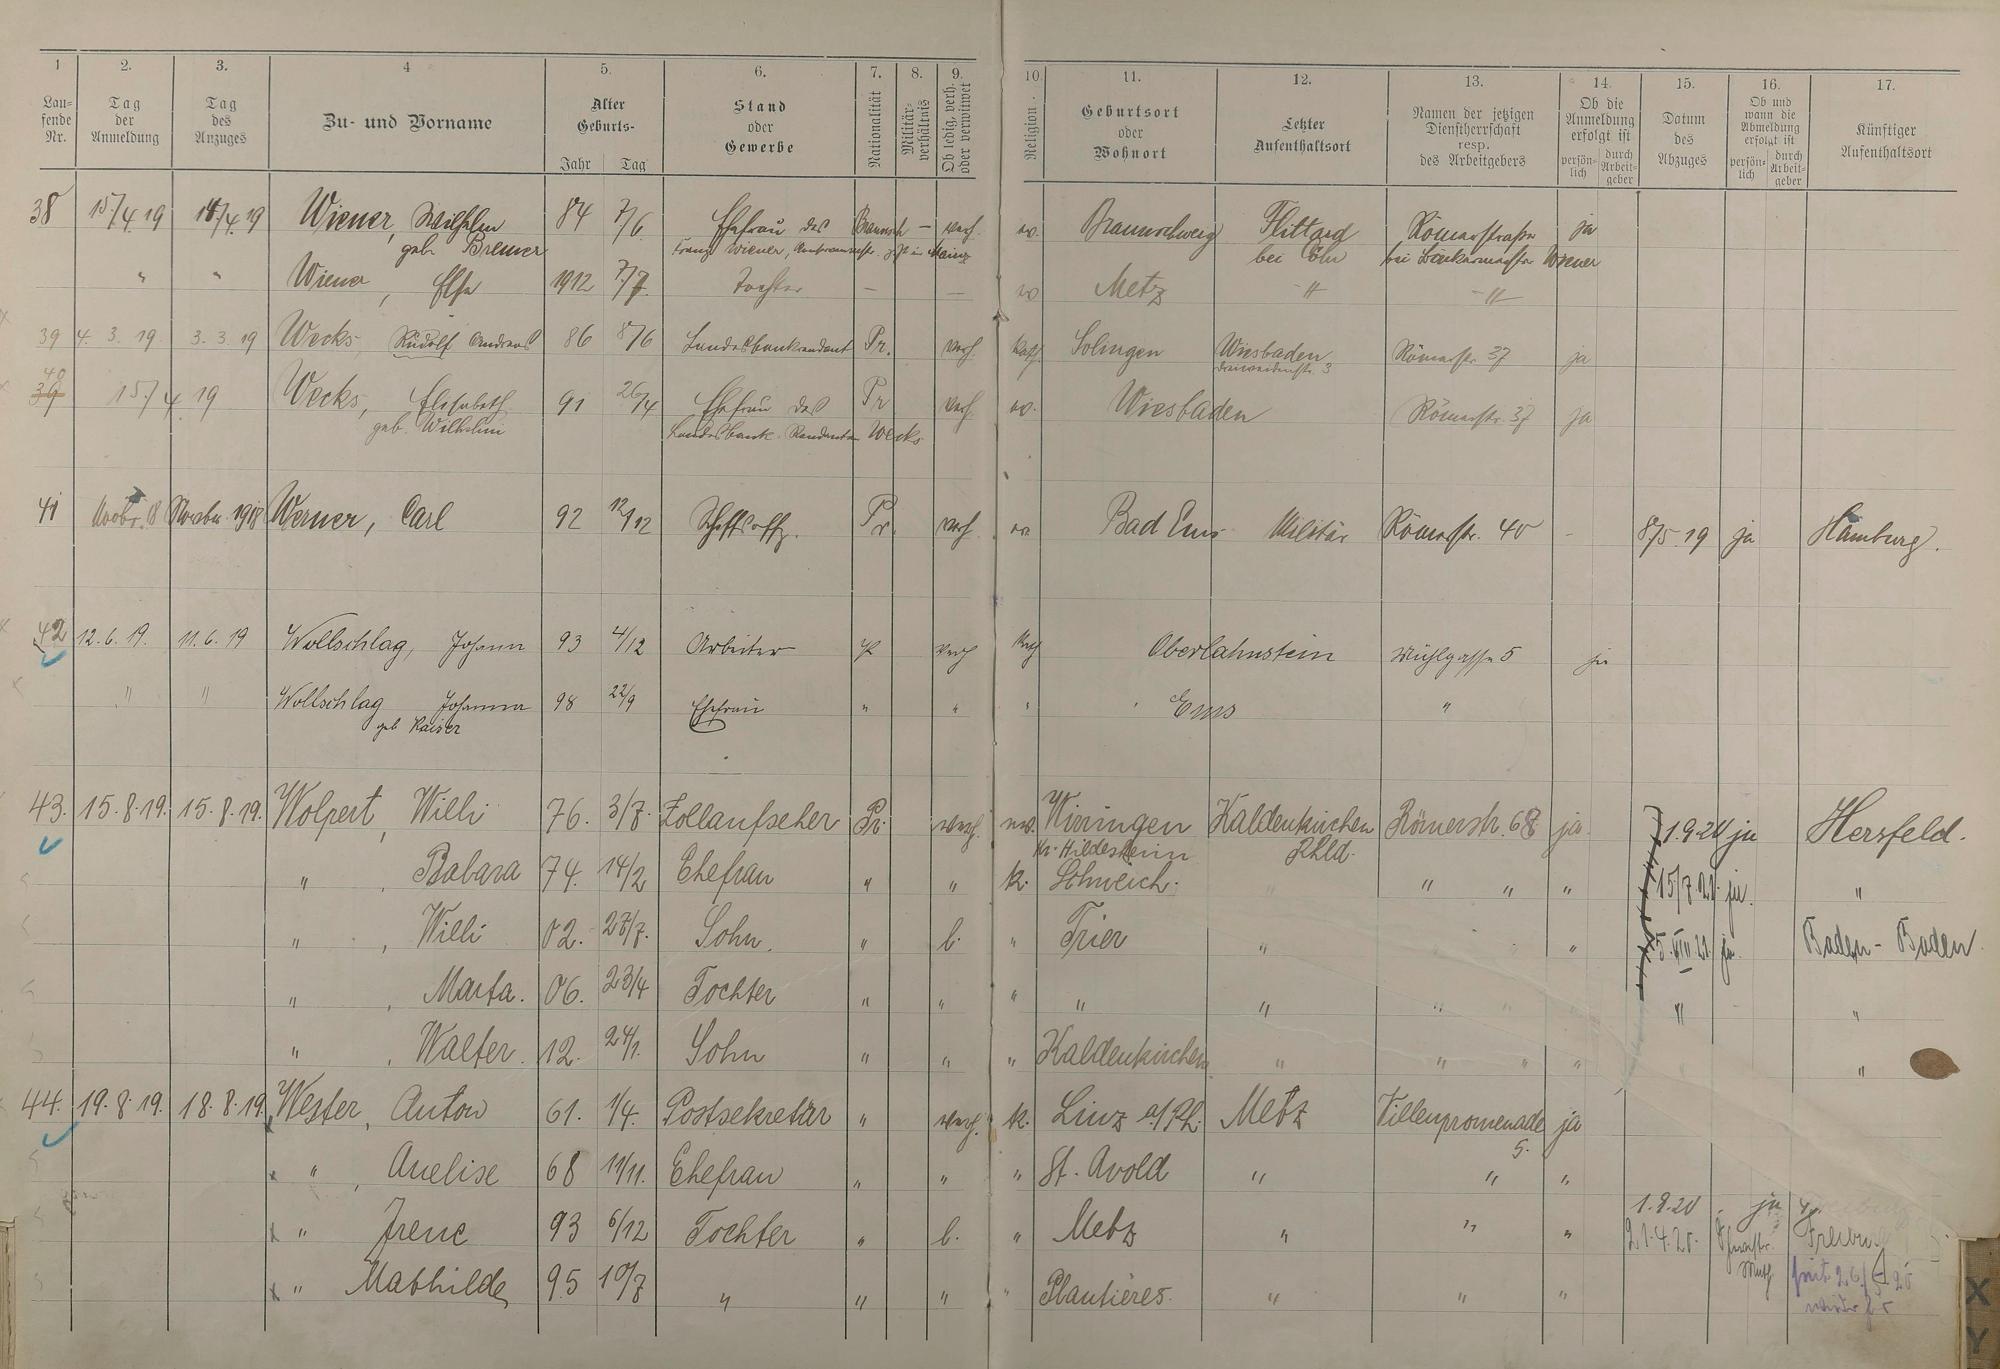 1 2. 3. 4 5. 6. 7. 8. 9. 10 11. 12. 13. 14. 15. 16. 17.
Laufende Nr.
Tag der Anmeldung
Tag des Anzuges
Zu- und Vorname
Alter
Geburts-
Jahr Tag
Stand oder Gewerbe
Nationalität
Militärverhältnis
Ob ledig, verh. oder verwitwet
Religion.
Geburtsort oder Wohnort
Letzter Aufenthaltsort
Namen der jetzigen Dienstherrschaft resp. des Arbeitgebers
Ob die Anmeldung erfolgt ist
persönlich durch Arbeitgeber
Datum des Abzuges
Ob und wann die Abmeldung erfolgt ist
persönlich durch Arbeitgeber
Künftiger Aufenthaltsort
38 15/4.19 /4.19 Wiener, Wilhelm 84 7/6 Ehefrau des Braunsch — verh. ev. Braunschweig Flittard Römerstraße ja
geb. Bremer Franz Wiener, in Mainz bei Cöln bei Wiener
" " Wiener, Else 1912 7/7 Tochter — — ev Metz " "
39 4.3.19 3.3.19 Wecks, Rudolf Andreas 86 8/6 Landesbankrendant Pr. verh. kath. Solingen Wiesbaden Römerstr. 37 ja
Dreiweidenstr. 3
40
39 15/4 19 Wecks, Elisabeth 91 26/4 Ehefrau des Pr verh. ev. Wiesbaden Römerstr. 37 ja
geb. Wilhelmi Landesbank-Rendanten Wecks
41 Novbr. 18 Novbr. 1918 Werner, Carl 92 12/12 Pr. verh. ev. Bad Ems Militär Römerstr. 40 - 8/5.19 ja Hamburg.
42 12.6.19. 11.6.19 Wollschlag, Johann 93 4/12 Arbeiter Pr verh kath Oberlahnstein Mühlgasse 5 ja
" " Wollschlag Johanna 98 22/9 Ehefrau " " " Ems "
geb Kaiser
43. 15.8.19. 15.8.19. Wolpert, Willi 76. 3/8. Zollaufseher Pr. verh. ev. Winningen Kaldenkirchen Römerstr. 68 ja 1.9.20 ja Hersfeld.
Kr. Hildesheim Rhld.
" , Babara 74. 14/2 Ehefrau " " k. Schweich. " " " " 15/7.21 ja. "
" , Willi 02. 27/7. Sohn. " l. " Trier " " 5.VIII.21. ja. Baden-Baden.
" , Marta. 06. 23/4 Tochter " " " " " " " "
" , Walter. 12. 24/1. Sohn " " " Kaldenkirchen " " " " "
44. 19.8.19. 18.8.19. Wester, Anton 61. 1/4. Postsekretär " verh. k. Linz a/Rh. Metz Villenpromenade ja
5.
" , Anelise 68 11/11. Ehefrau " " " St. Avold " " "
1.9.20 ja
" Irene 93 6/12 Tochter " l. " Metz " " " 21.4.20.
" Mathilde 95 10/7 " " " " Plantières. " " "
X
Y